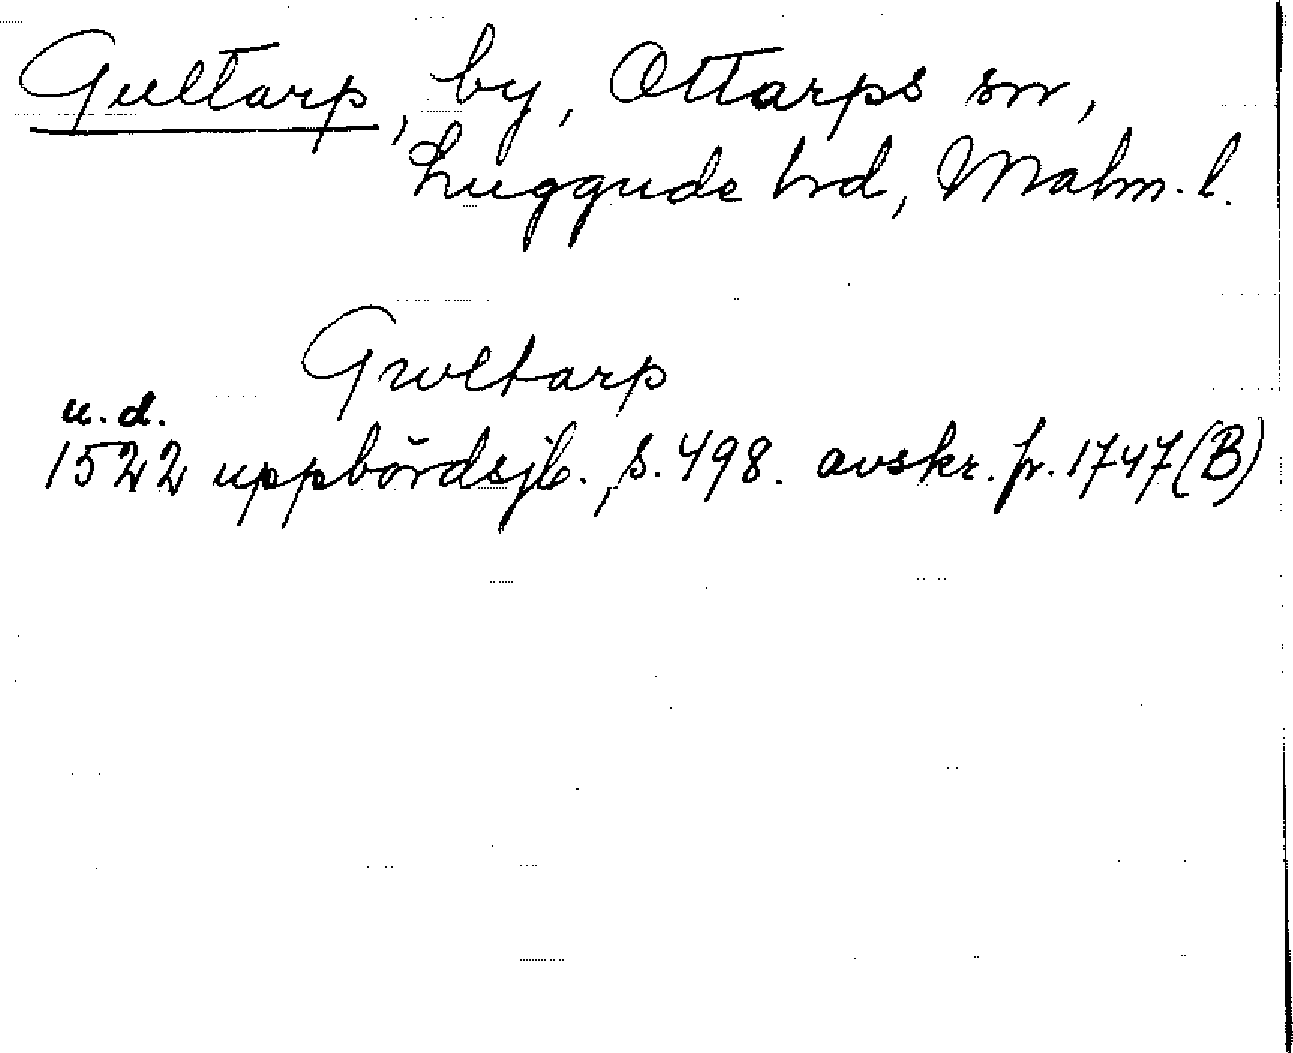 Gultarp, by, Ottarps sn,
Luggude hrd, Malm. l.
Gwltarp
u.d.
1522 uppbördsjb., s. 498. avskr. fr. 1747 (B)